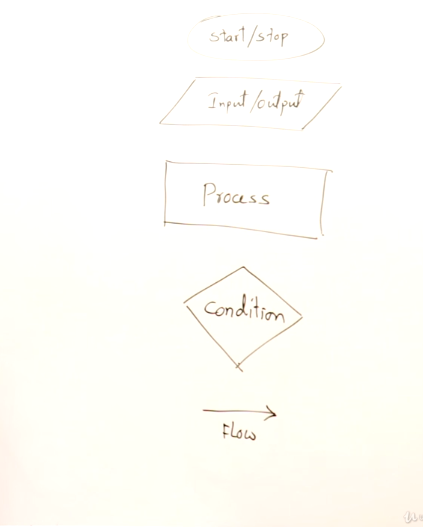 start/stop
Input/output
Process
Condition
Flow